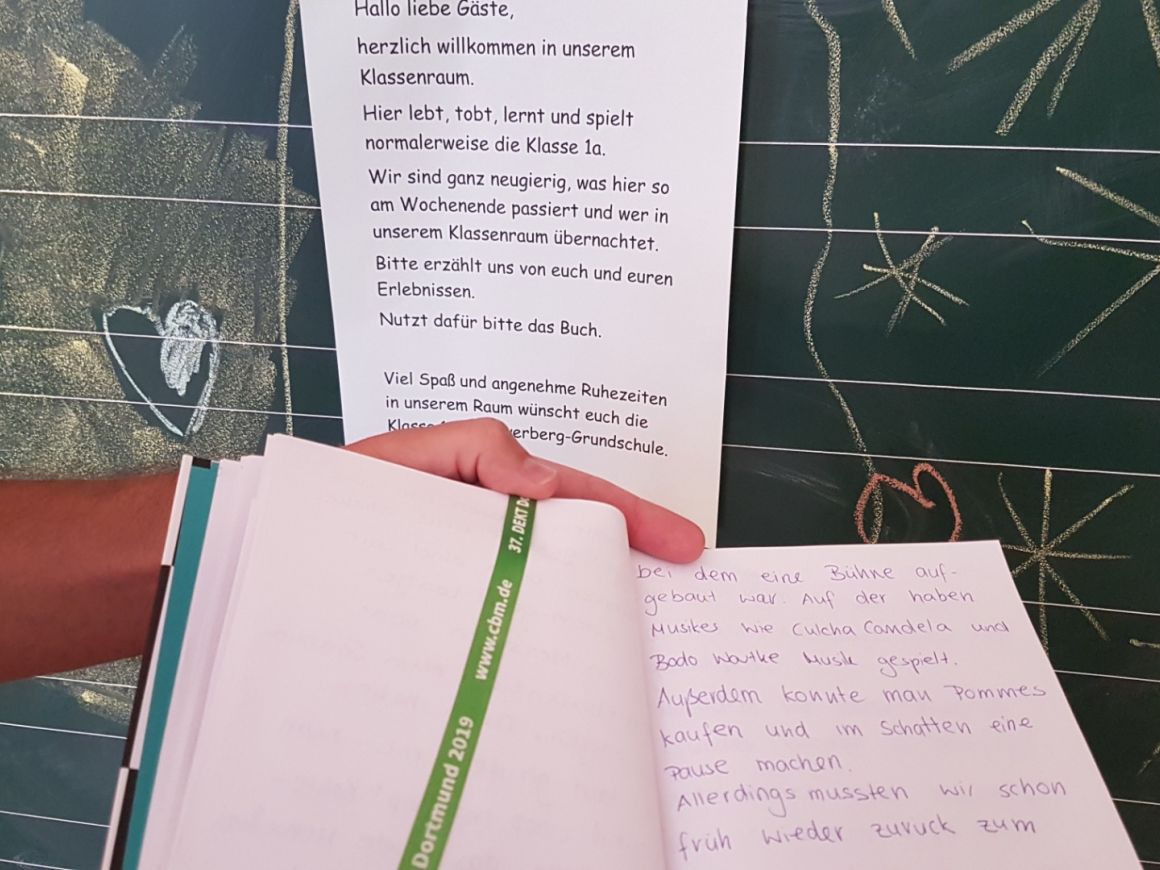 Hallo liebe Gäste,
herzlich willkommen in unserem
Klassenraum.
Hier lebt, tobt, lernt und spielt
normalerweise die Klasse 1a.
Wir sind ganz neugierig, was hier so
am Wochenende passiert und wer in
unserem Klassenraum übernachtet.
Bitte erzählt uns von euch und euren
Erlebnissen.
Nutzt dafür bitte das Buch.
Viel Spaß und angenehme Ruhezeiten
in unserem Raum wünscht euch die
Klasse erberg-Grundschule.
Dortmund 2019 www.cbm.de 37. DEKT Do
bei dem eine Bühne auf-
gebaut war. Auf der haben
Musiker wie Culcha Candela und
Bodo Wartke Musik gespielt.
Außerdem konnte man Pommes
kaufen und im Schatten eine
Pause machen.
Allerdings mussten wir schon
früh wieder zurück zum